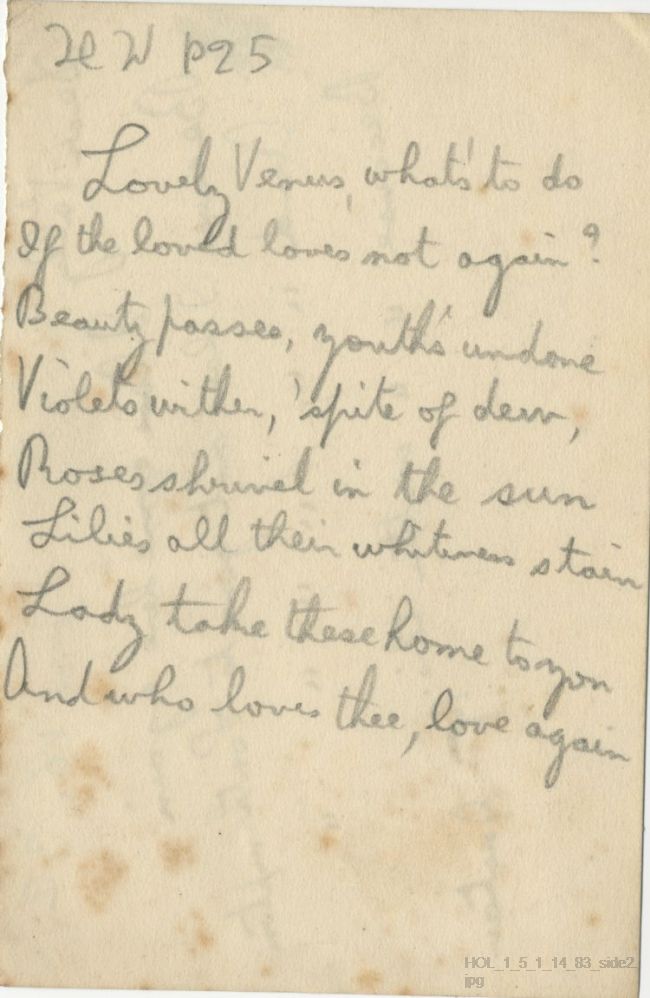 H W p25
Lovely Venus, what's to do
If the loved loves not again?
Beauty passes, youth's undone
Violets wither, 'spite of dew,
Roses shrivel in the sun
Lilies all their whiteness stain
Lady take these home to you
And who loves thee, love again
HOL_1_5_1_14_83_side2.
jpg